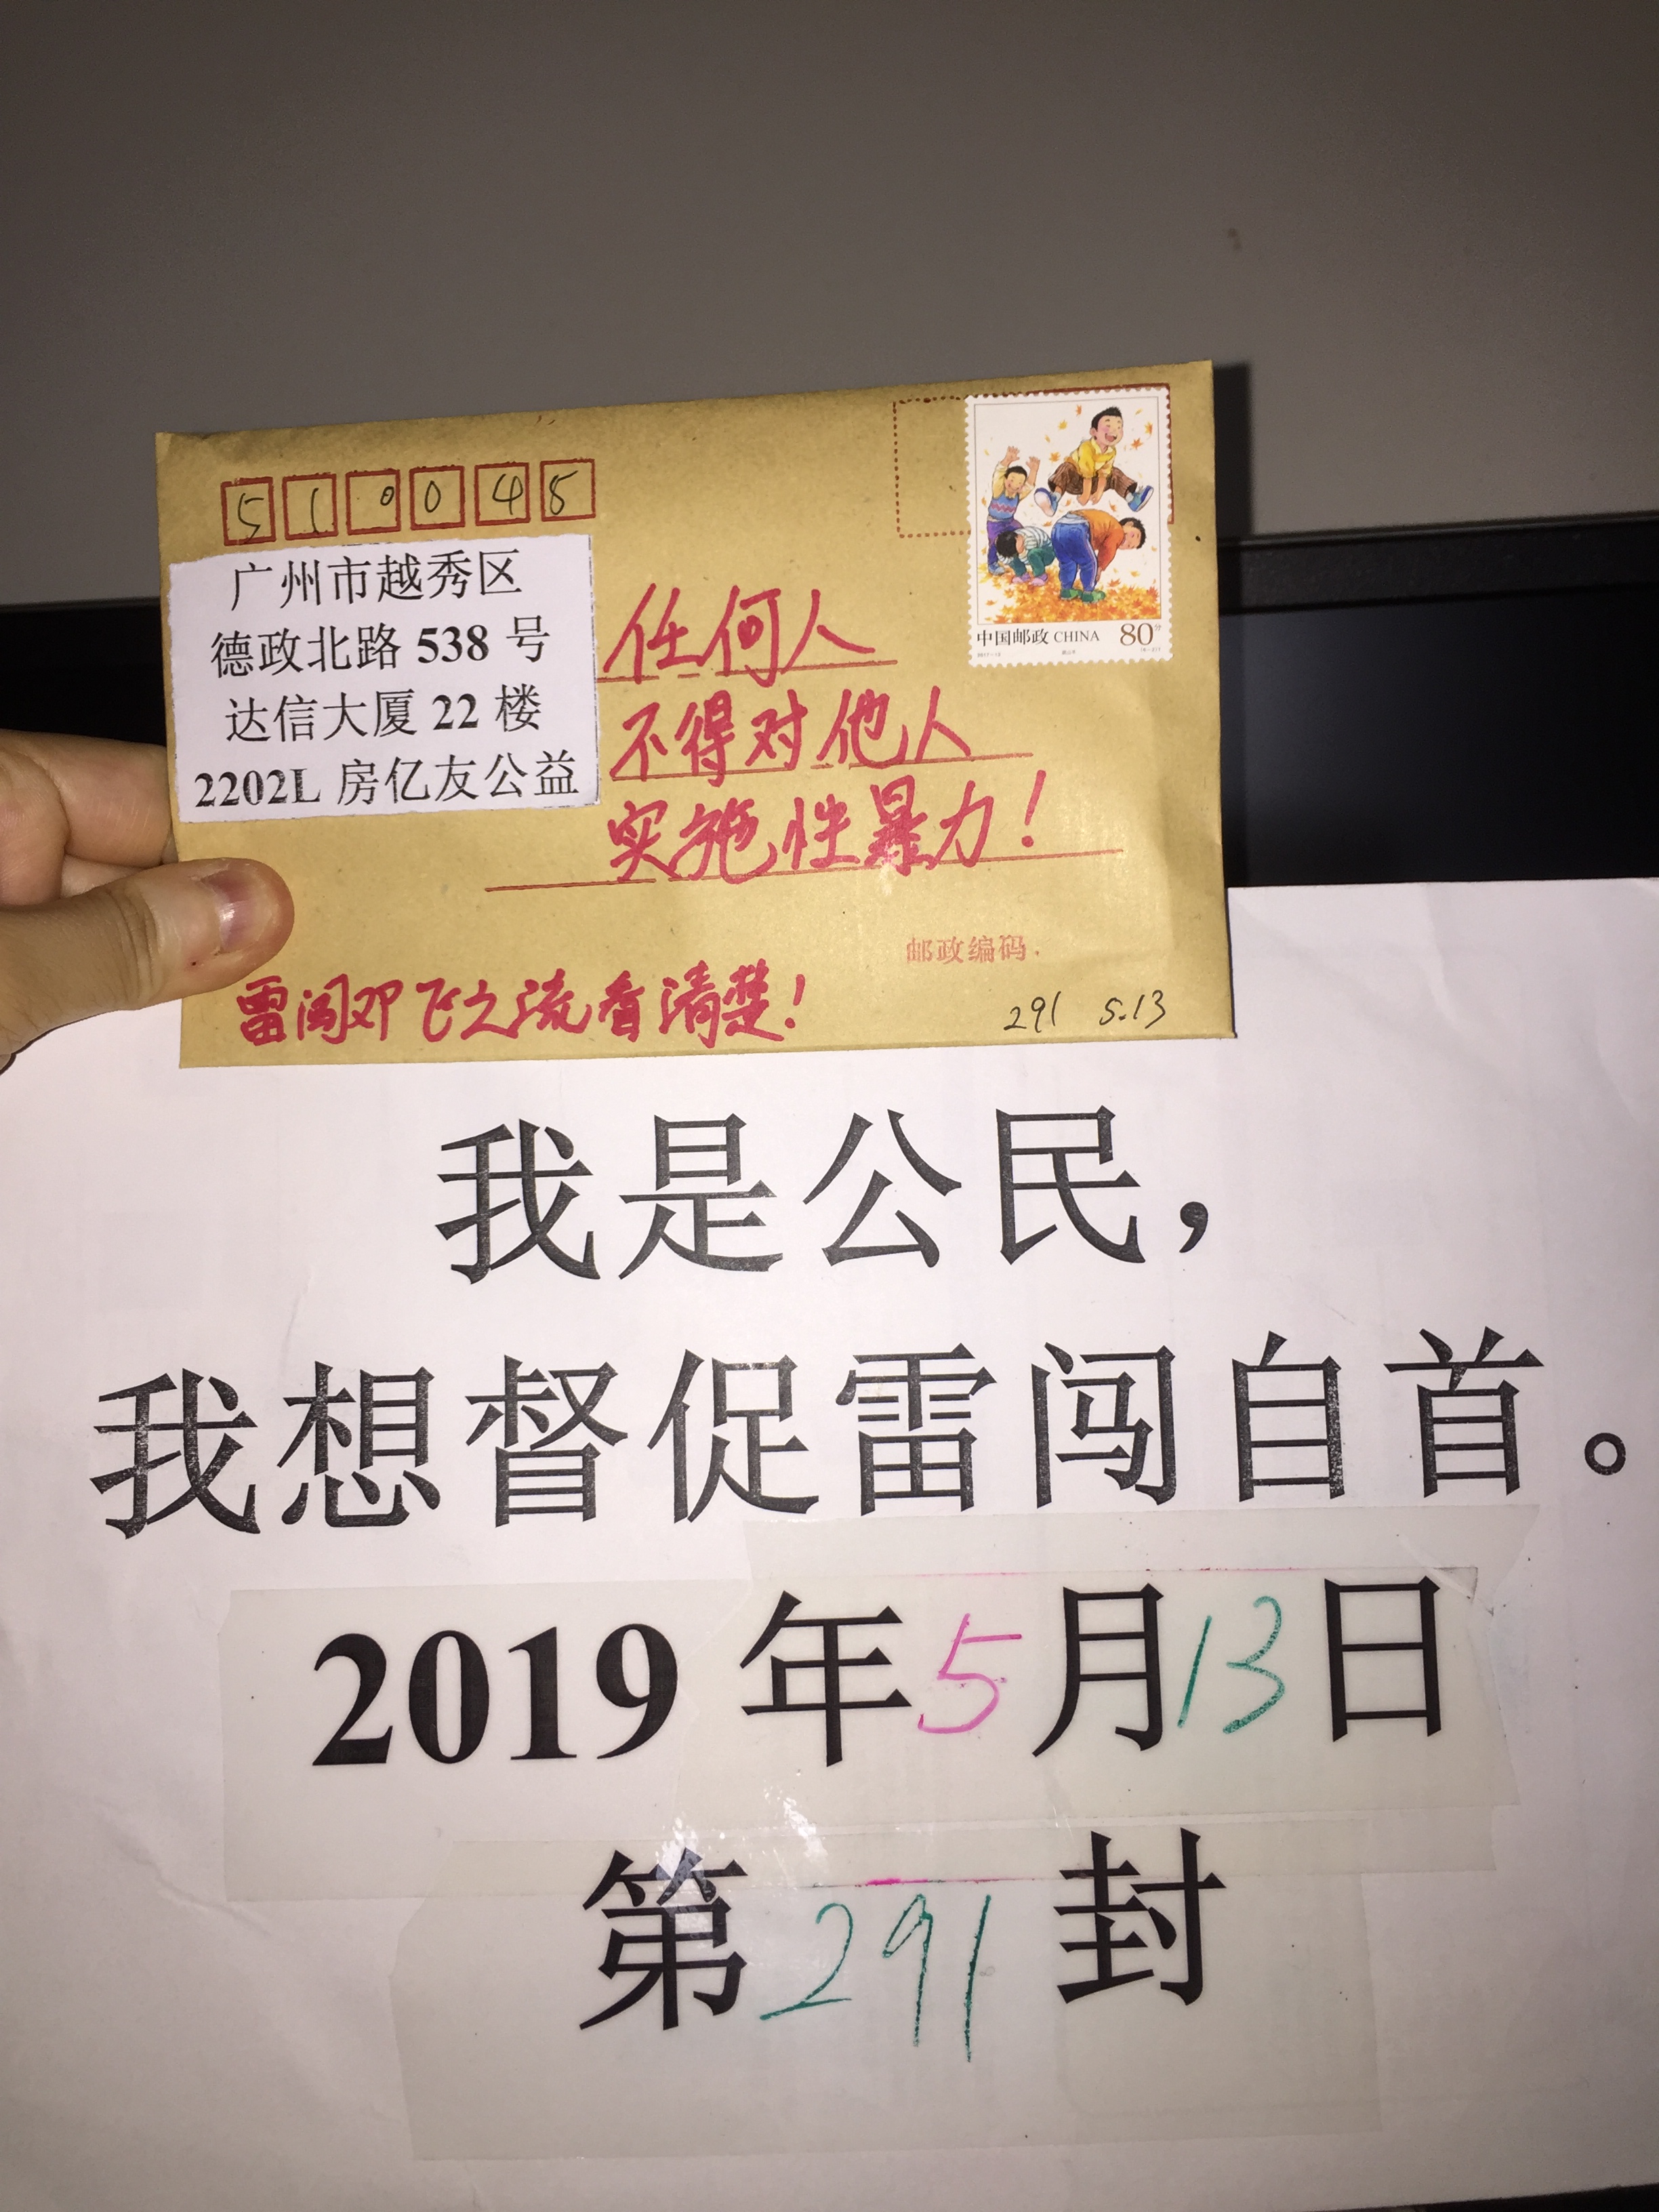 510045
广州市越秀区
德政北路 538 号
达信大厦 22 楼
2202L 房亿友公益
中国邮政 CHINA 80分
任何人
不得对他人
实施性暴力！
邮政编码
雷闯邓飞之流看清楚！
291 5.13
我是公民，
我想督促雷闯自首。
2019 年 5 月 13 日
第 291 封